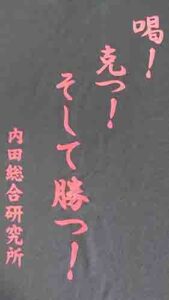 喝!
克つ!
そして勝つ!
内田総合研究所